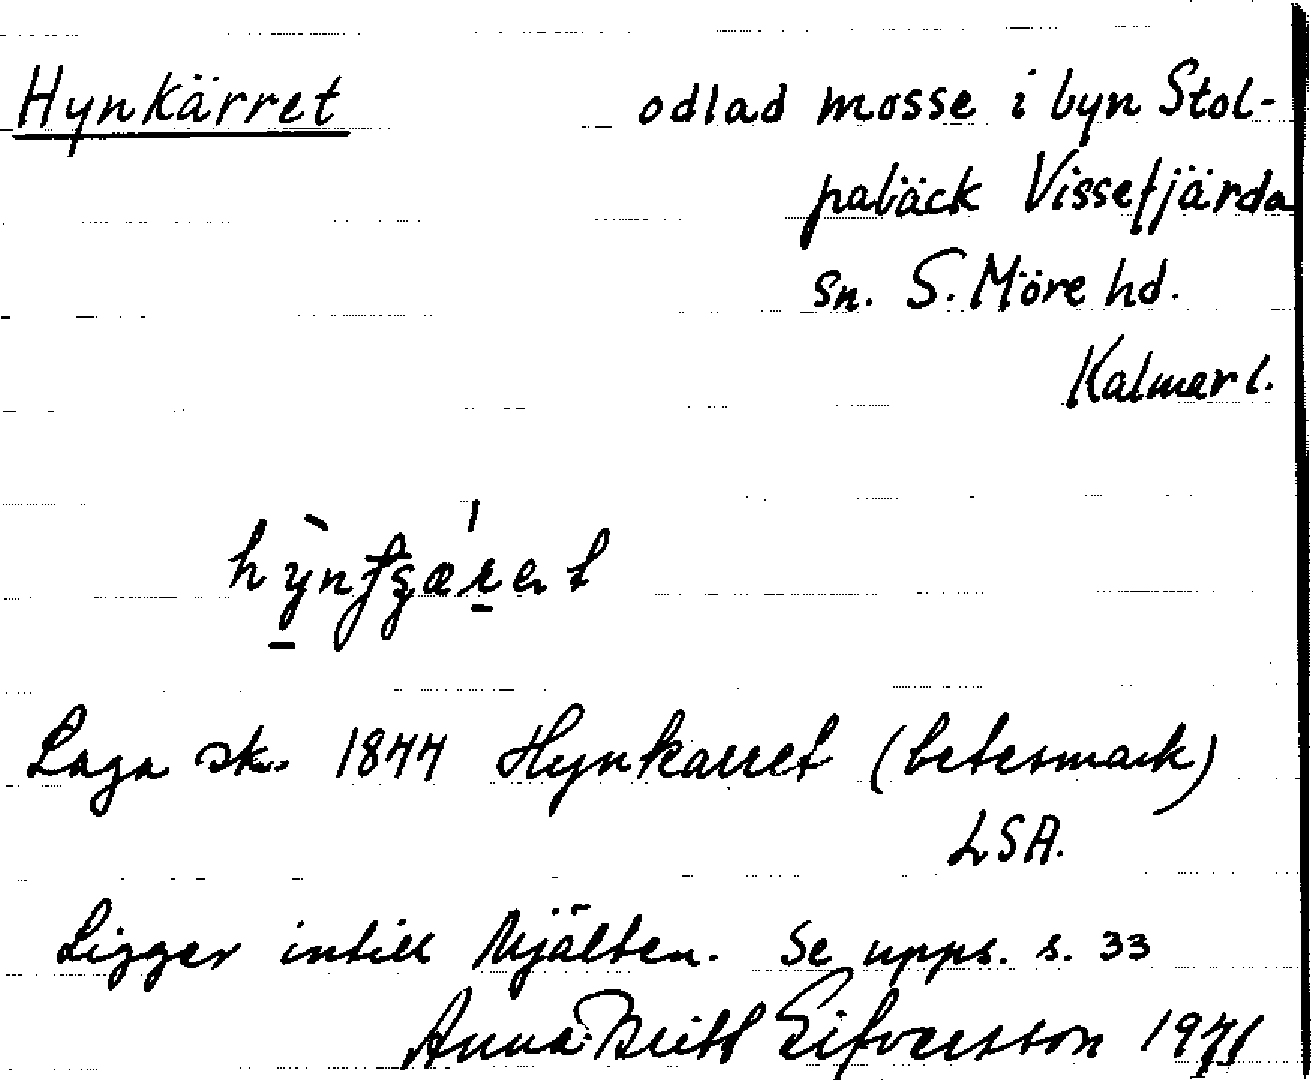 Hynkärret odlad mosse i byn Stol-
pabäck Vissefjärda
sn. S. Möre hd.
Kalmar l.
Laga sk. 1844 Hynkarret (betesmark)
LSA.
Ligger intill Mjälten. Se upps. s. 33
Anna-Britt Eifversson 1971